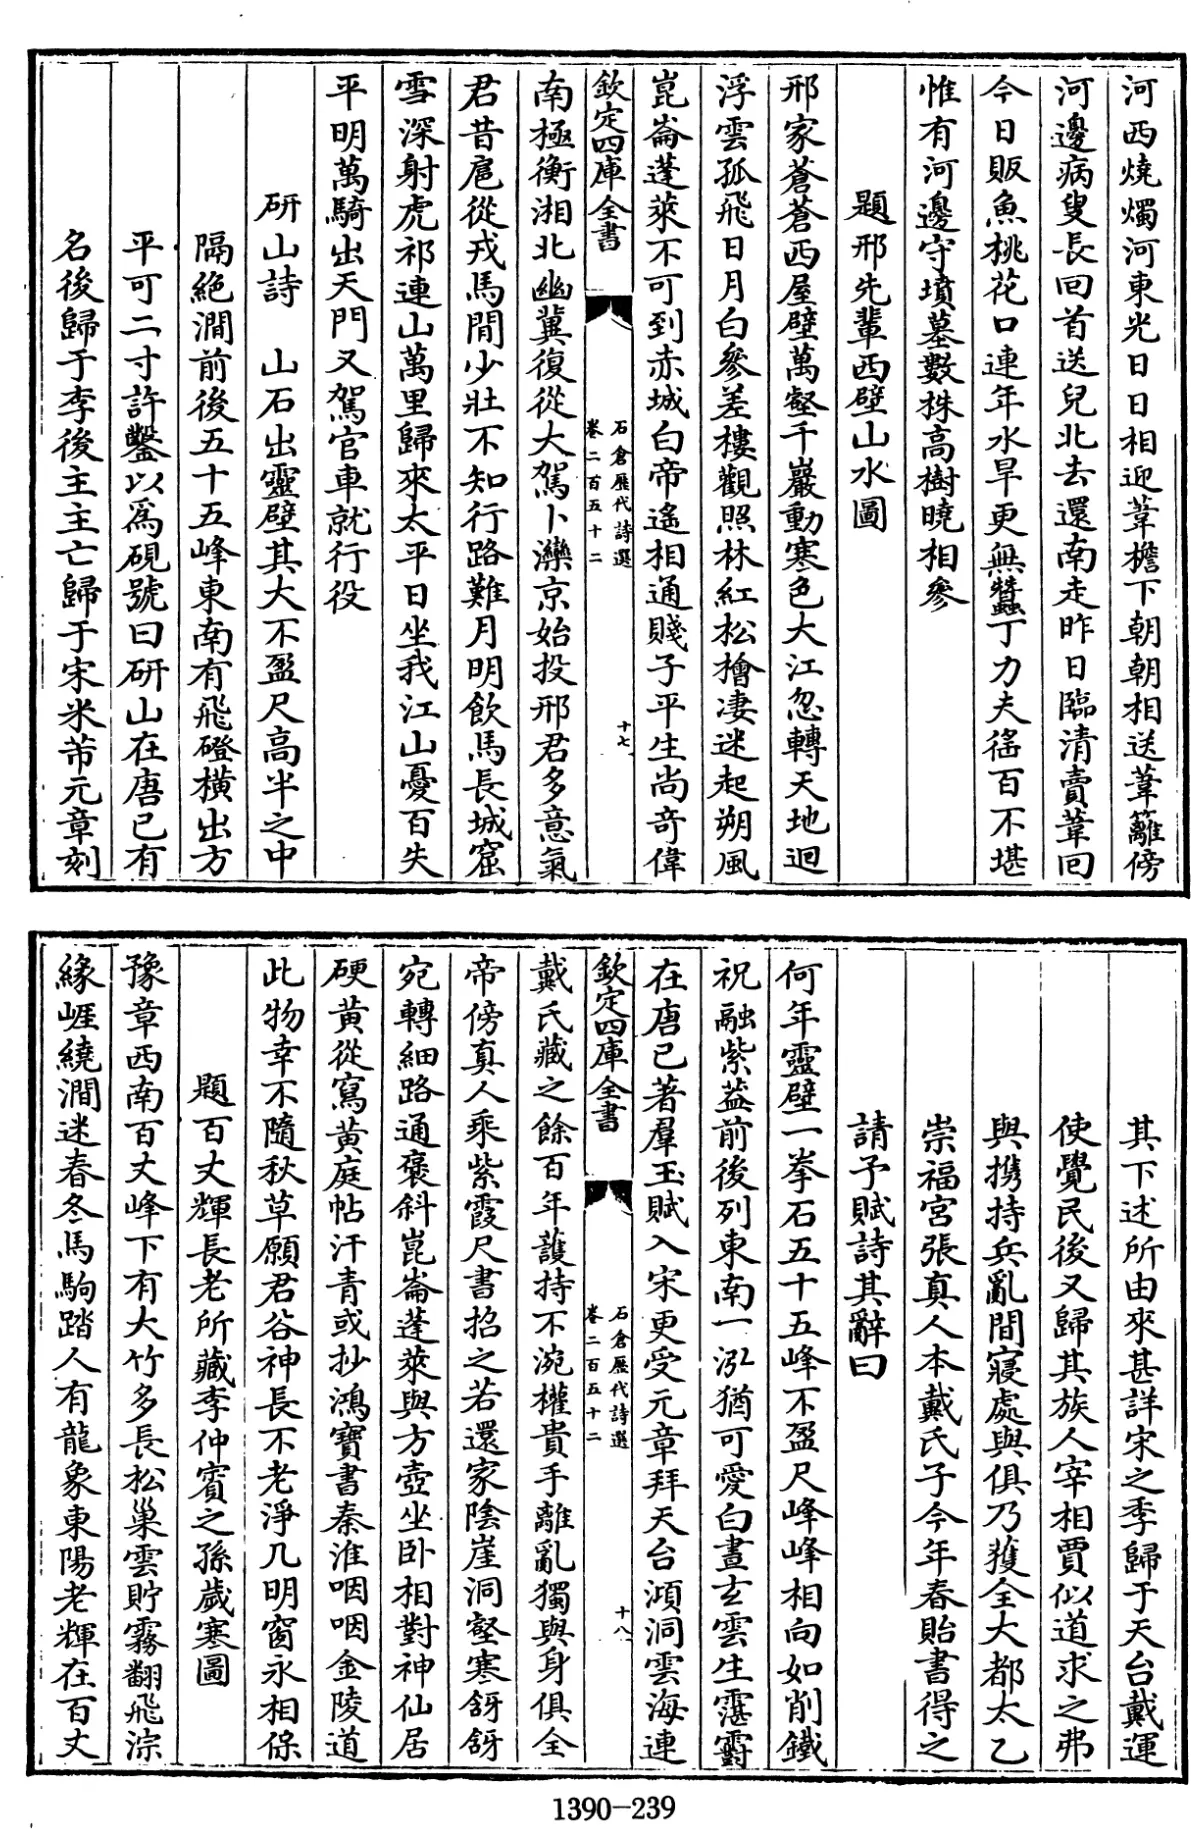 河西燒燭河東光日日相迎葦檐下朝朝相送葦籬傍
河邊病叟長回首送兒北去還南走昨日臨清賣葦回
今日販魚桃花口連年水旱更無蠶丁力夫徭百不堪
惟有河邊守墳墓數株高樹曉相參
題邢先輩西壁山水圖
邢家蒼蒼西屋壁萬壑千巖動寒色大江忽轉天地迴
浮雲孤飛日月白參差樓觀照林紅松檜凄迷起朔風
崑崙蓬萊不可到赤城白帝遙相通賤子平生尚奇偉
欽定四庫全書
石倉歷代詩選
卷二百五十二
十七
南極衡湘北幽冀復從大駕卜灤京始投邢君多意氣
君昔扈從戎馬間少壯不知行路難月明飲馬長城窟
雪深射虎祁連山萬里歸來太平日坐我江山憂百失
平明萬騎出天門又駕官車就行役
研山詩 山石出靈壁其大不盈尺高半之中
隔絶澗前後五十五峰東南有飛磴橫出方
平可二寸許鑿以爲硯號曰研山在唐已有
名後歸于李後主主亡歸于宋米芾元章刻
其下述所由來甚詳宋之季歸于天台戴運
使覺民後又歸其族人宰相賈似道求之弗
與携持兵亂間寢處與俱乃獲全大都太乙
崇福宮張真人本戴氏子今年春貽書得之
請予賦詩其辭曰
何年靈壁一拳石五十五峰不盈尺峰峰相向如削鐵
祝融紫蓋前後列東南一泓猶可愛白晝玄雲生霮䨴
在唐已著羣玉賦入宋更受元章拜天台澒洞雲海連
欽定四庫全書
石倉歷代詩選
卷二百五十二
十八
戴氏藏之餘百年護持不涴權貴手離亂獨與身俱全
帝傍真人乘紫霞尺書招之若還家陰崖洞壑寒谺谺
宛轉細路通褒斜崑崙蓬萊與方壺坐卧相對神仙居
硬黃從寫黃庭帖汗青或抄鴻寶書秦淮咽咽金陵道
此物幸不隨秋草願君谷神長不老淨几明窗永相保
題百丈輝長老所藏李仲賓之孫歲寒圖
豫章西南百丈峰下有大竹多長松巢雲貯霧翻飛淙
緣崕繞澗迷春冬馬駒踏人有龍象東陽老輝在百丈
1390-239